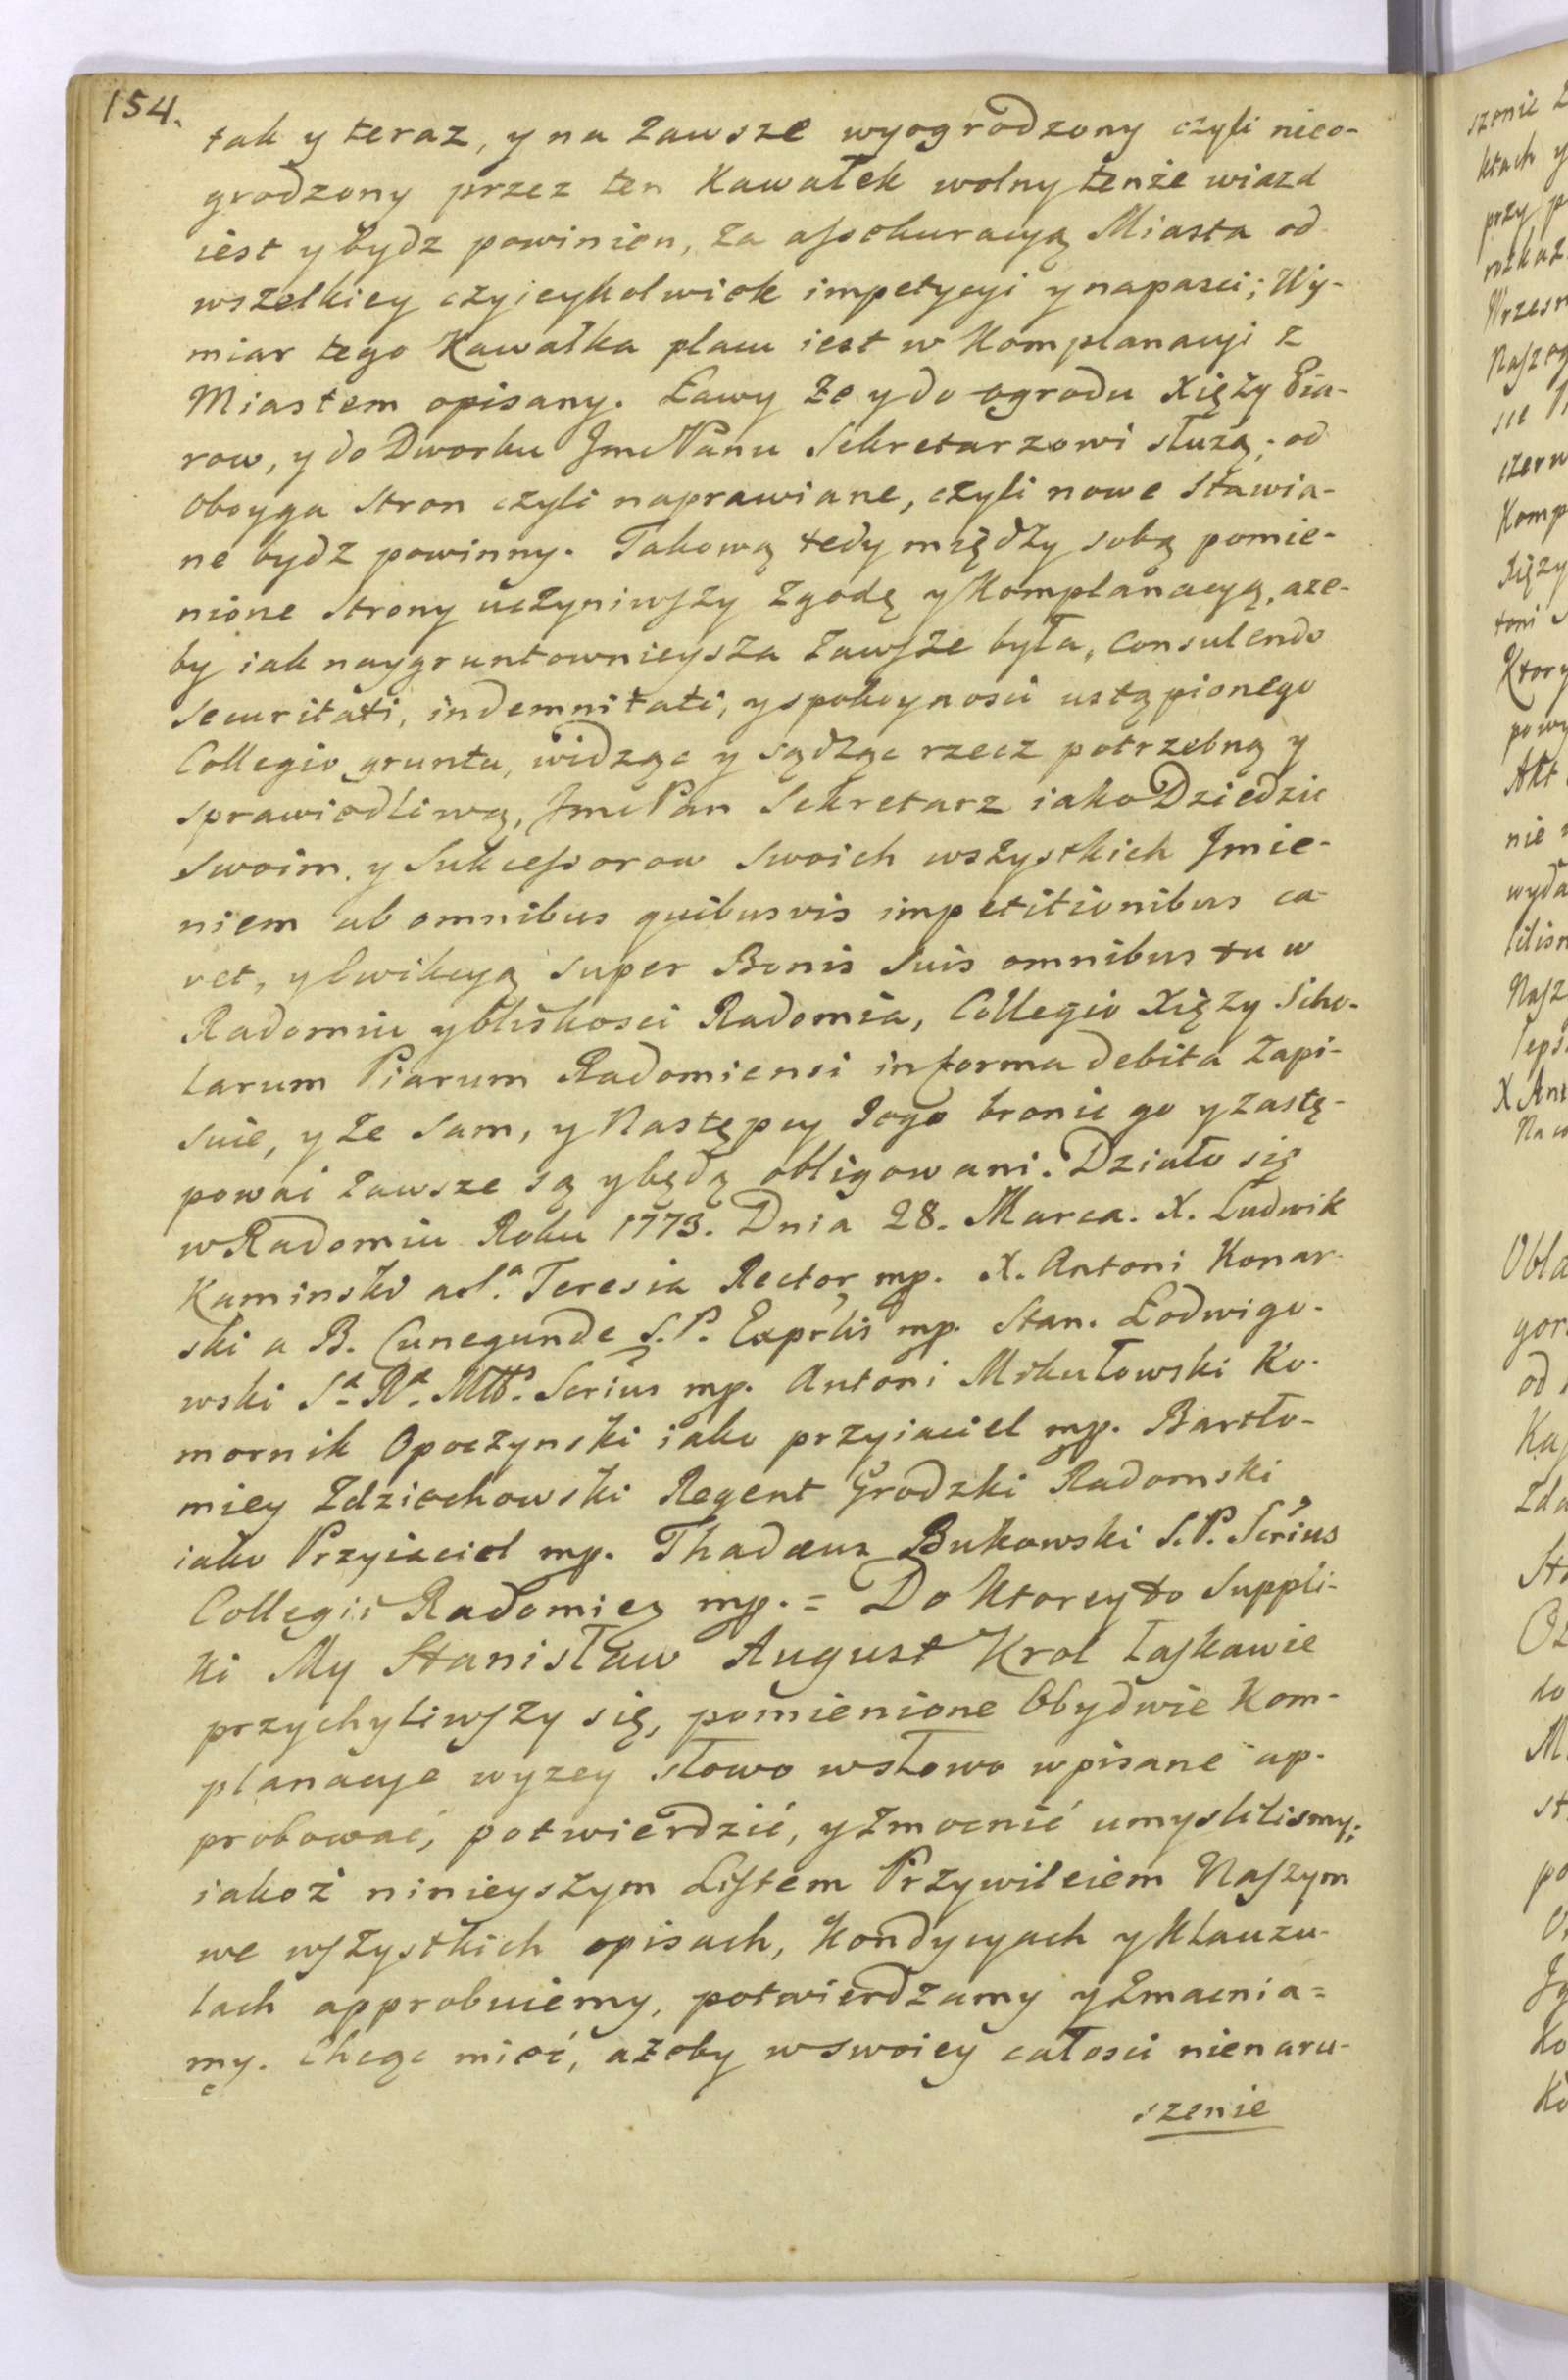 154.
tak y teraz, y na zawsze wyogrodzony czyli nieo-
grodzony przez ten Kawałek wolny tenże wiazd
iest y bydz powinien, za assekuracyą Miasta od
wszelkiey czyieykolwiek impetycyi y napasci; Wy-
miar tego Kawałka placu iest w Komplanacyi z
Miastem opisany. Ławy że y do ogrodu Xięży Pia-
row, y do Dworku Jmć Panu Sekretarzowi służą; od
oboyga Stron czyli naprawiane, czyli nowe stawia-
ne bydz powinny. Takową tedy między sobą pomie-
nione Strony uczyniwszy Zgodę y Komplanacyą, aże-
by iak naygruntownieysza zawsze była, consulendo
Securitati, indemnitati, y spokoynosci ustąpionego
Collegio gruntu, widząc y sądząc rzecz potrzebną y
sprawiedliwą, Jmć Pan Sekretarz iako Dziedzic
swoim, y Sukcessorow swoich wszystkich Jmie-
niem ab omnibus quibusvis impetitionibus ca-
vet, y Ewikcyą super Bonis suis omnibus tu w
Radomiu y bliskosci Radomia, Collegio Xięży Scho-
larum Piarum Radomiensi in forma debita zapi-
suie, y że sam, y Następcy Jego bronić go y zastę-
powac zawsze są y będą obligowani. Działo się
w Radomiu Roku 1773. Dnia 28. Marca. X. Ludwik
Kaminski a S.ª Teresia Rector mp. X. Antoni Konar-
ski a B. Cunegunde S. P. Exprlis mp. Stan. Łodwigo-
wski S.ª R.ª Mttis Scrius mp. Antoni Mikułowski Ko-
mornik Opoczynski iako przyiaciel mp. Bartło-
miey Zdziechowski Regent Grodzki Radomski
iako Przyiaciel mp. Thadæus Bukowski S. P. Scrius
Collegii Radomien mp. = Do Ktorey to Suppli-
ki My Stanisław August Krol łaskawie
przychyliwszy się, pomienione Obydwie Kom-
planacye wyzey słowo w słowo wpisane ap-
probować, potwierdzić, y zmocnić umyslilismy;
iakoż ninieyszym Listem Przywileiem Naszym
we wszystkich opisach, Kondycyach y Klauzu-
lach approbuiemy, potwierdzamy y zmacnia=
my. Chcąc mieć, ażeby w swoiey całosci nienaru-
szenie